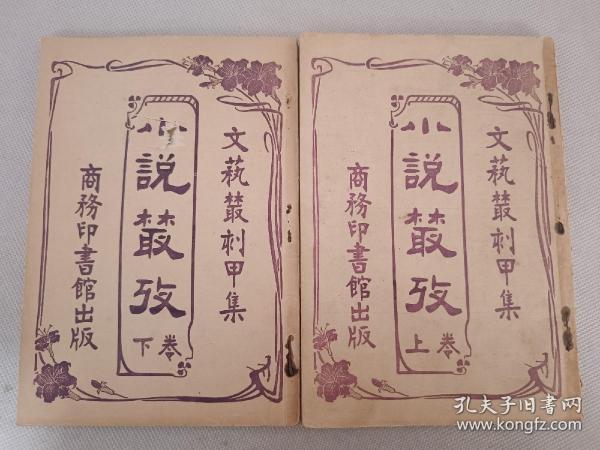 文藝叢刻甲集
小説叢攷
卷上
商務印書館出版
文藝叢刻甲集
小説叢攷
卷下
商務印書館出版
孔夫子旧書网
www.kongfz.com